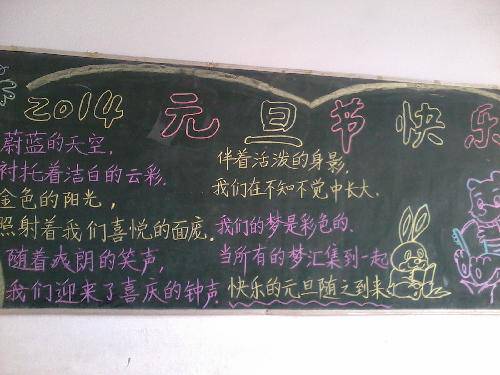 2014 元旦节快乐
蔚蓝的天空,
衬托着洁白的云彩.
金色的阳光,
照射着我们喜悦的面庞.
随着爽朗的笑声,
我们迎来了喜庆的钟声.
伴着活泼的身影.
我们在不知不觉中长大.
我们的梦是彩色的.
当所有的梦汇集到一起
快乐的元旦随之到来